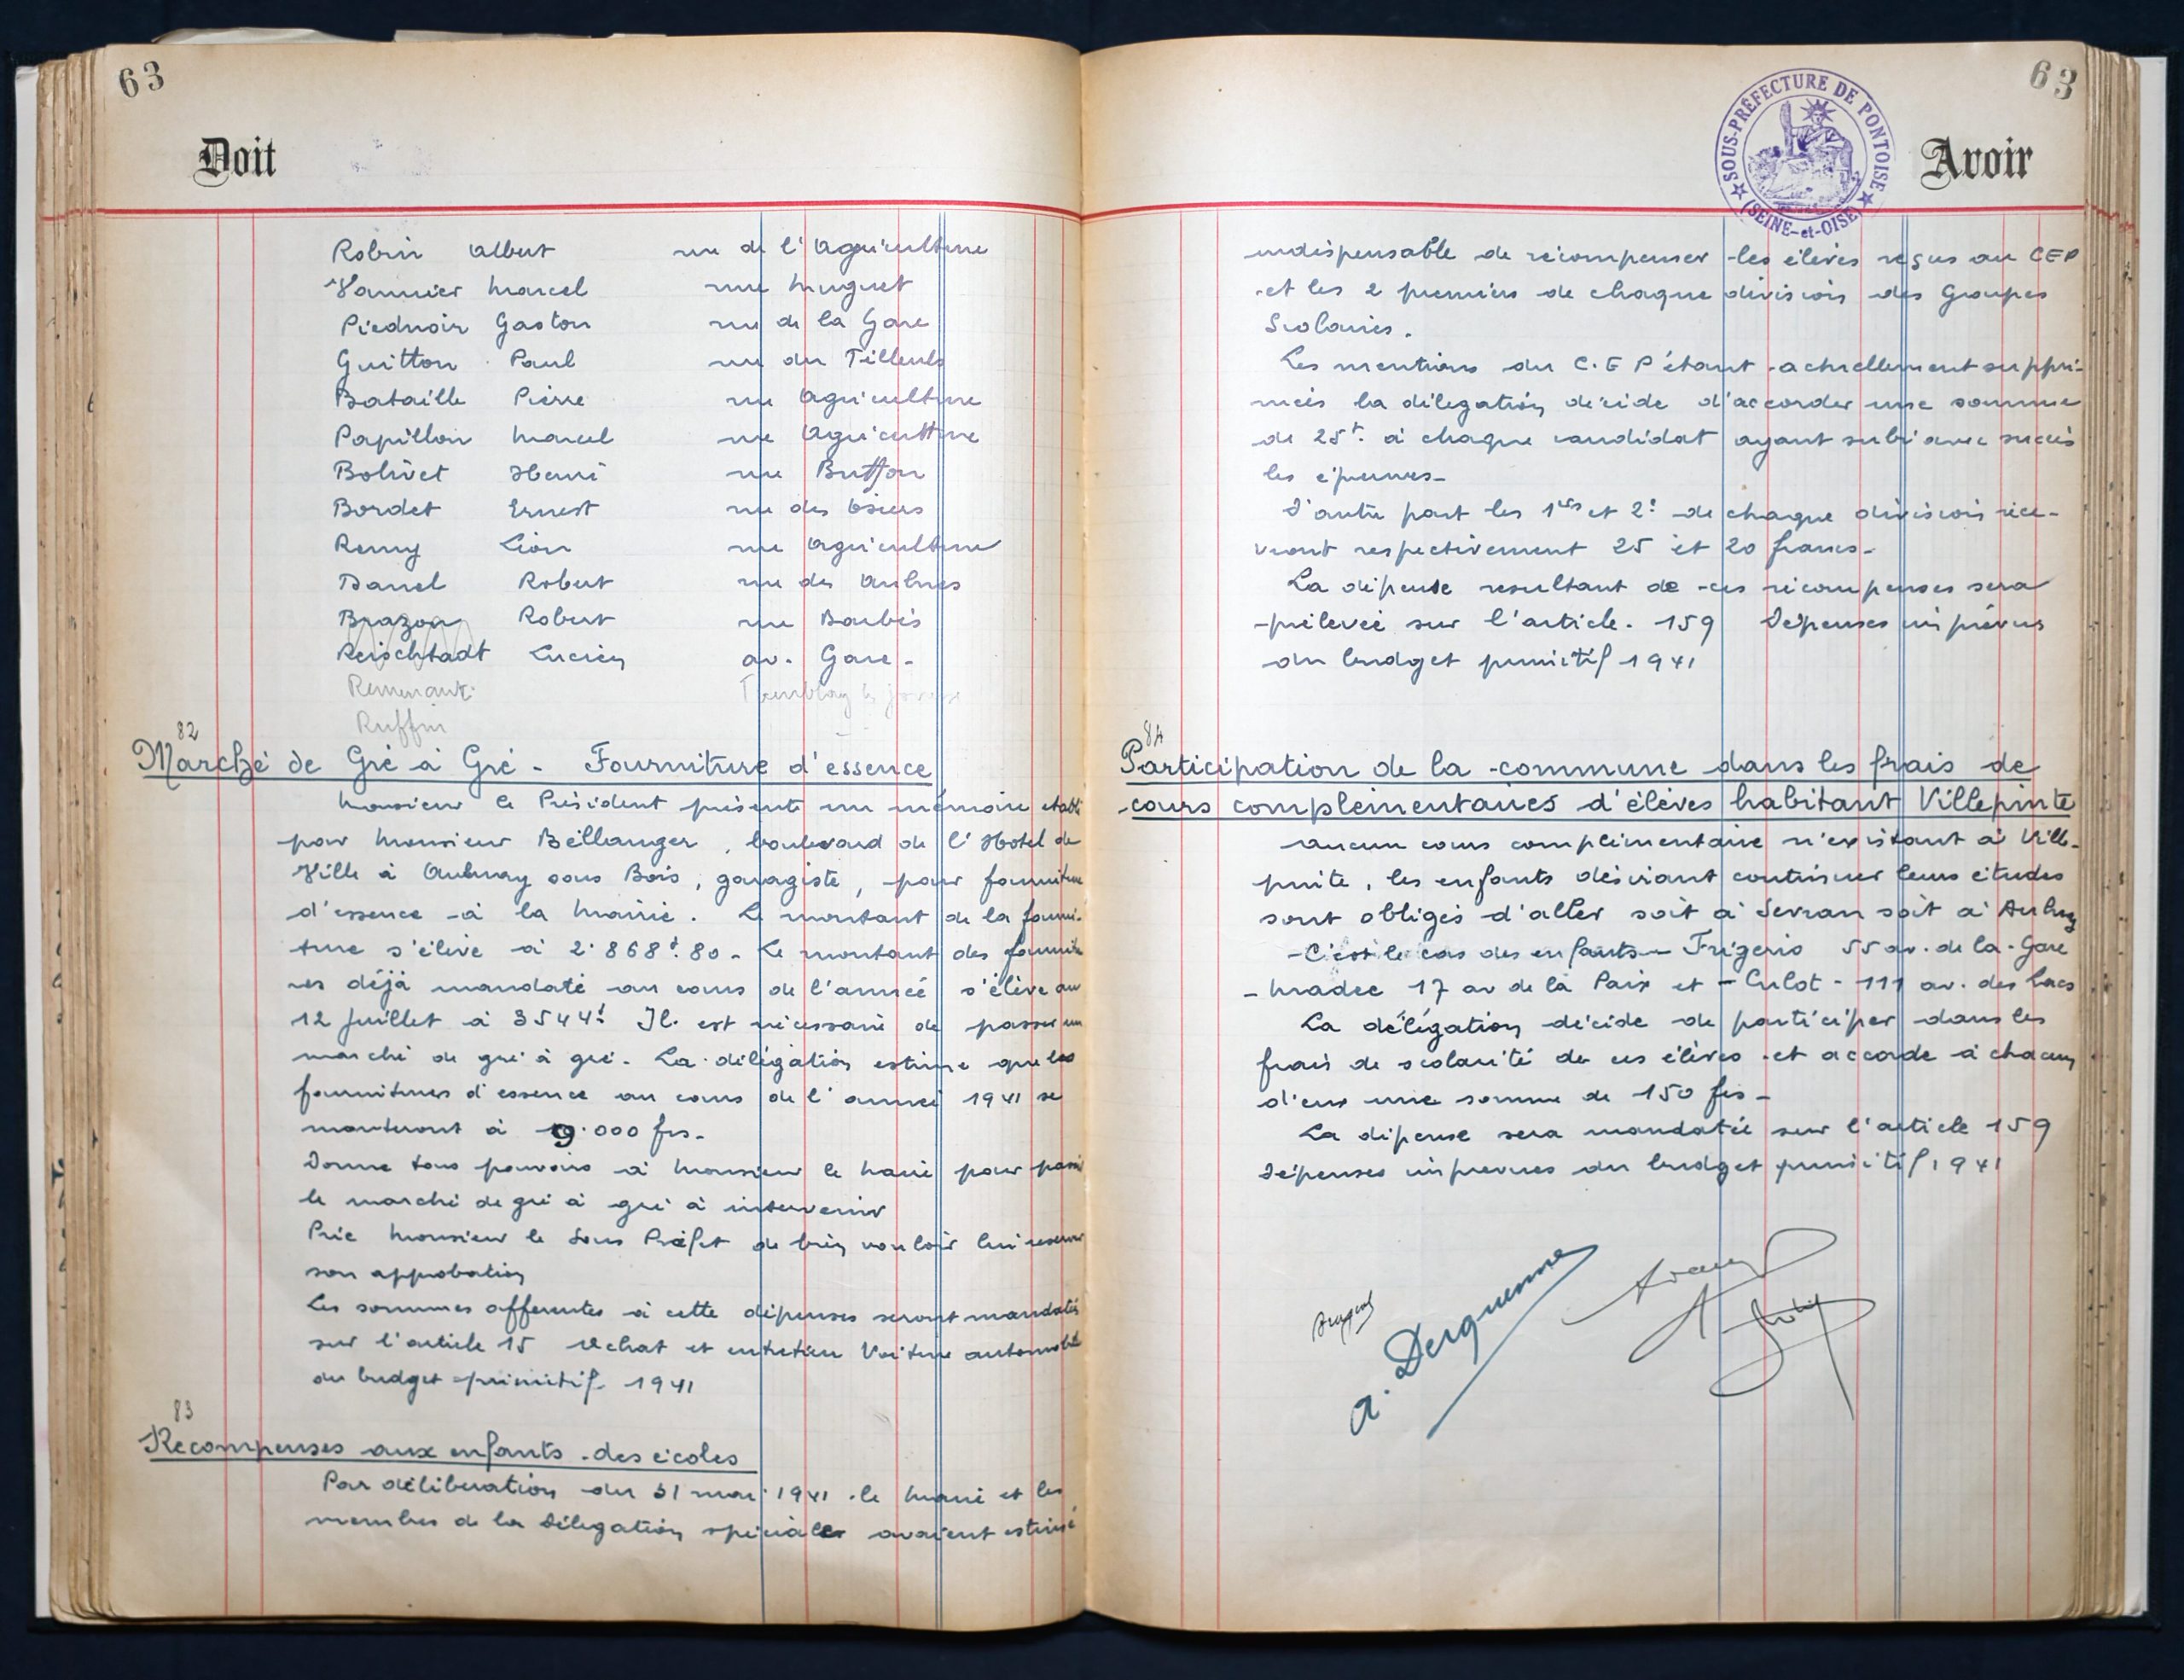 63
Doit
Robin Albert rue de l'Agriculture
Vannier Marcel rue Muguet
Piednoir Gaston rue de la Gare
Guitton Paul rue du Tilleuls
Bataille Pierre rue Agriculture
Papillon Marcel rue Agriculture
Bolivet Henri rue Buffon
Bordet Ernest rue des Osiers
Remy Léon rue Agriculture
Danel Robert rue des Aulnes
Brazon Robert rue Barbès
Reischtadt Lucien av. Gare -
Remenant Tremblay les
Ruffin
82
Marché de Gré à Gré - Fourniture d'essence
Monsieur le Président présente un mémoire établi
par Monsieur Bellanger, boulevard de l'Hotel de
Ville à Aulnay sous Bois, garagiste, pour fourniture
d'essence à la Mairie. Le montant de la fourni-
ture s'élève à 2.868f.80 - Le montant des fournitu
res déjà mandaté au cours de l'année s'élève au
12 Juillet à 3544f. Il est nécessaire de passer un
marché de gré à gré. La délégation estime que les
fournitures d'essence au cours de l'année 1941 se
monteront à 9.000 frs.
Donne tous pouvoirs à Monsieur le Maire pour passer
le marché de gré à gré à intervenir
Prie Monsieur le Sous Préfet de bien vouloir lui réserver
son approbation
Les sommes afferentes à cette dépenses seront mandatés
sur l'article 15 Achat et entretien Voiture automobile
du budget primitif 1941
83
Récompenses aux enfants des écoles
Par délibération du 31 mai 1941 le Maire et les
membres de la Délégation spéciales avaient estimé
63
Avoir
SOUS-PRÉFECTURE DE PONTOISE
(SEINE-et-OISE)
indispensable de récompenser les élèves reçus au CEP
et les 2 premiers de chaque division des Groupes
Scolaires.
Les mentions du C.E P étant actuellement suppri-
mées la délégation décide d'accorder une somme
de 25f. à chaque candidat ayant subi avec succès
les épreuves -
D'autre part les 1ers et 2e de chaque division rece-
vront respectivement 25 et 20 francs -
La dépense resultant de ces récompenses sera
prélevée sur l'article. 159 Dépenses imprévus
du budget primitif 1941
84
Participation de la commune dans les frais de
cours complémentaires d'élèves habitant Villepinte
Aucun cours complémentaire n'existant à Ville-
pinte, les enfants désirant continuer leurs études
sont obligés d'aller soit à Sevran soit à Aulnay
- C'est le cas des enfants - Frigerio 55 av. de la Gare
- Madec 17 av de la Paix et - Culot - 111 av. des Lacs
La délégation décide de participer dans les
frais de scolarité de ces élèves et accorde à chacun
d'eux une somme de 150 frs -
La dépense sera mandatée sur l'article 159
Dépenses imprevues du budget primitif 1941
A. Derguesme